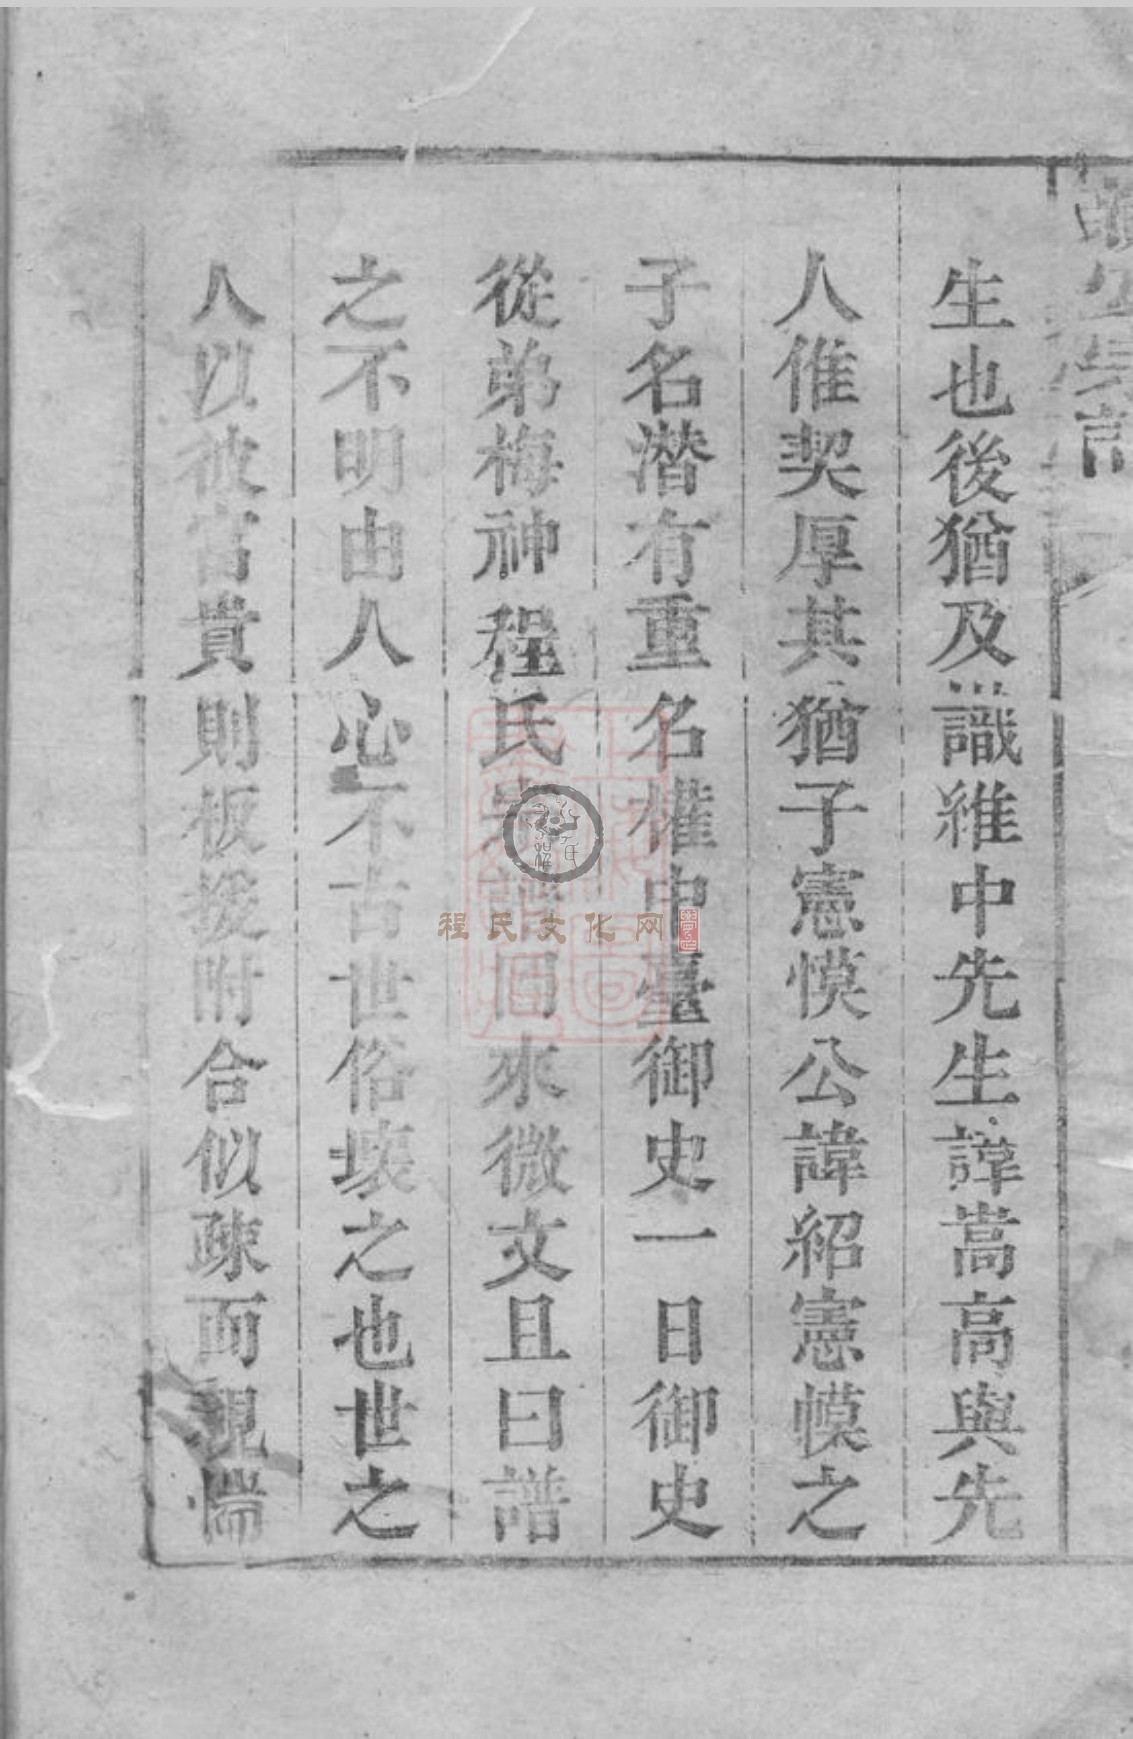 生也後猶及識維中先生諱嵩高與先
人倠契厚其猶子憲慔公諱紹憲慔之
子名潛有重名權中臺御史一日御史
從弟梅神程氏宗譜囙來徵文且曰譜
之不明由人心不古世俗壞之也世之
人以彼富貴則板援附合似疎而親惴
程氏文化网